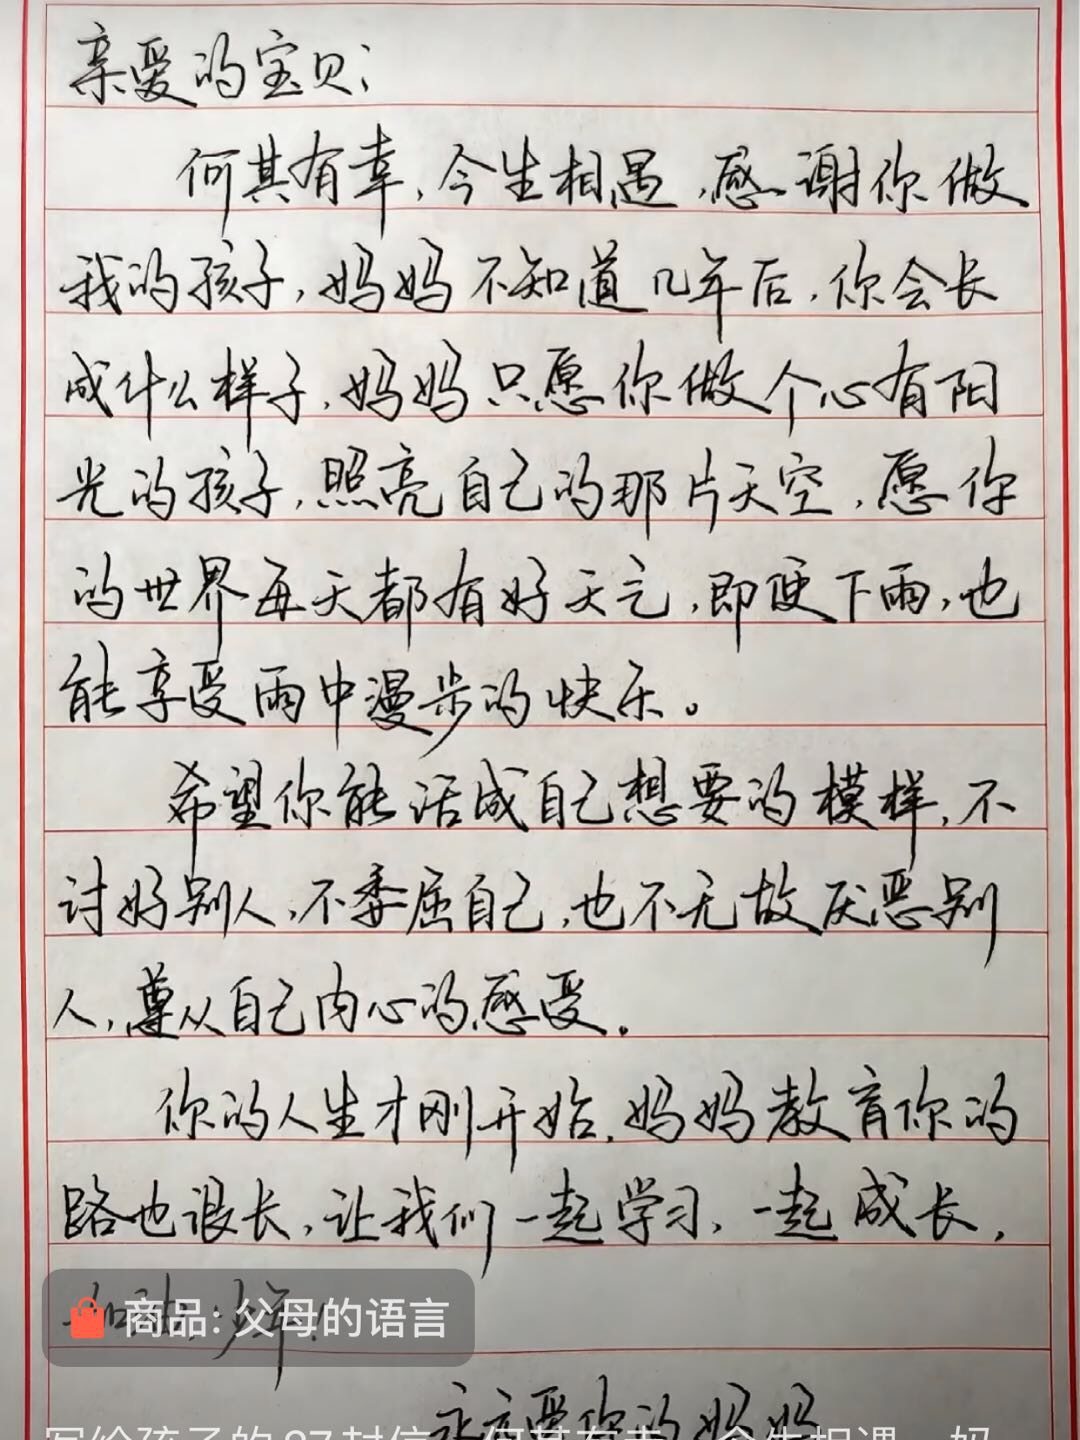 亲爱的宝贝：
何其有幸，今生相遇，感谢你做
我的孩子，妈妈不知道几年后，你会长
成什么样子，妈妈只愿你做个心有阳
光的孩子，照亮自己的那片天空，愿你
的世界每天都有好天气，即便下雨，也
能享受雨中漫步的快乐。
希望你能活成自己想要的模样，不
讨好别人，不委屈自己，也不无故厌恶别
人，遵从自己内心的感受。
你的人生才刚开始，妈妈教育你的
路也很长，让我们一起学习，一起成长，
加油，少年！
商品：父母的语言
永远爱你的妈妈
写给孩子的27封信 何其有幸，今生相遇，妈